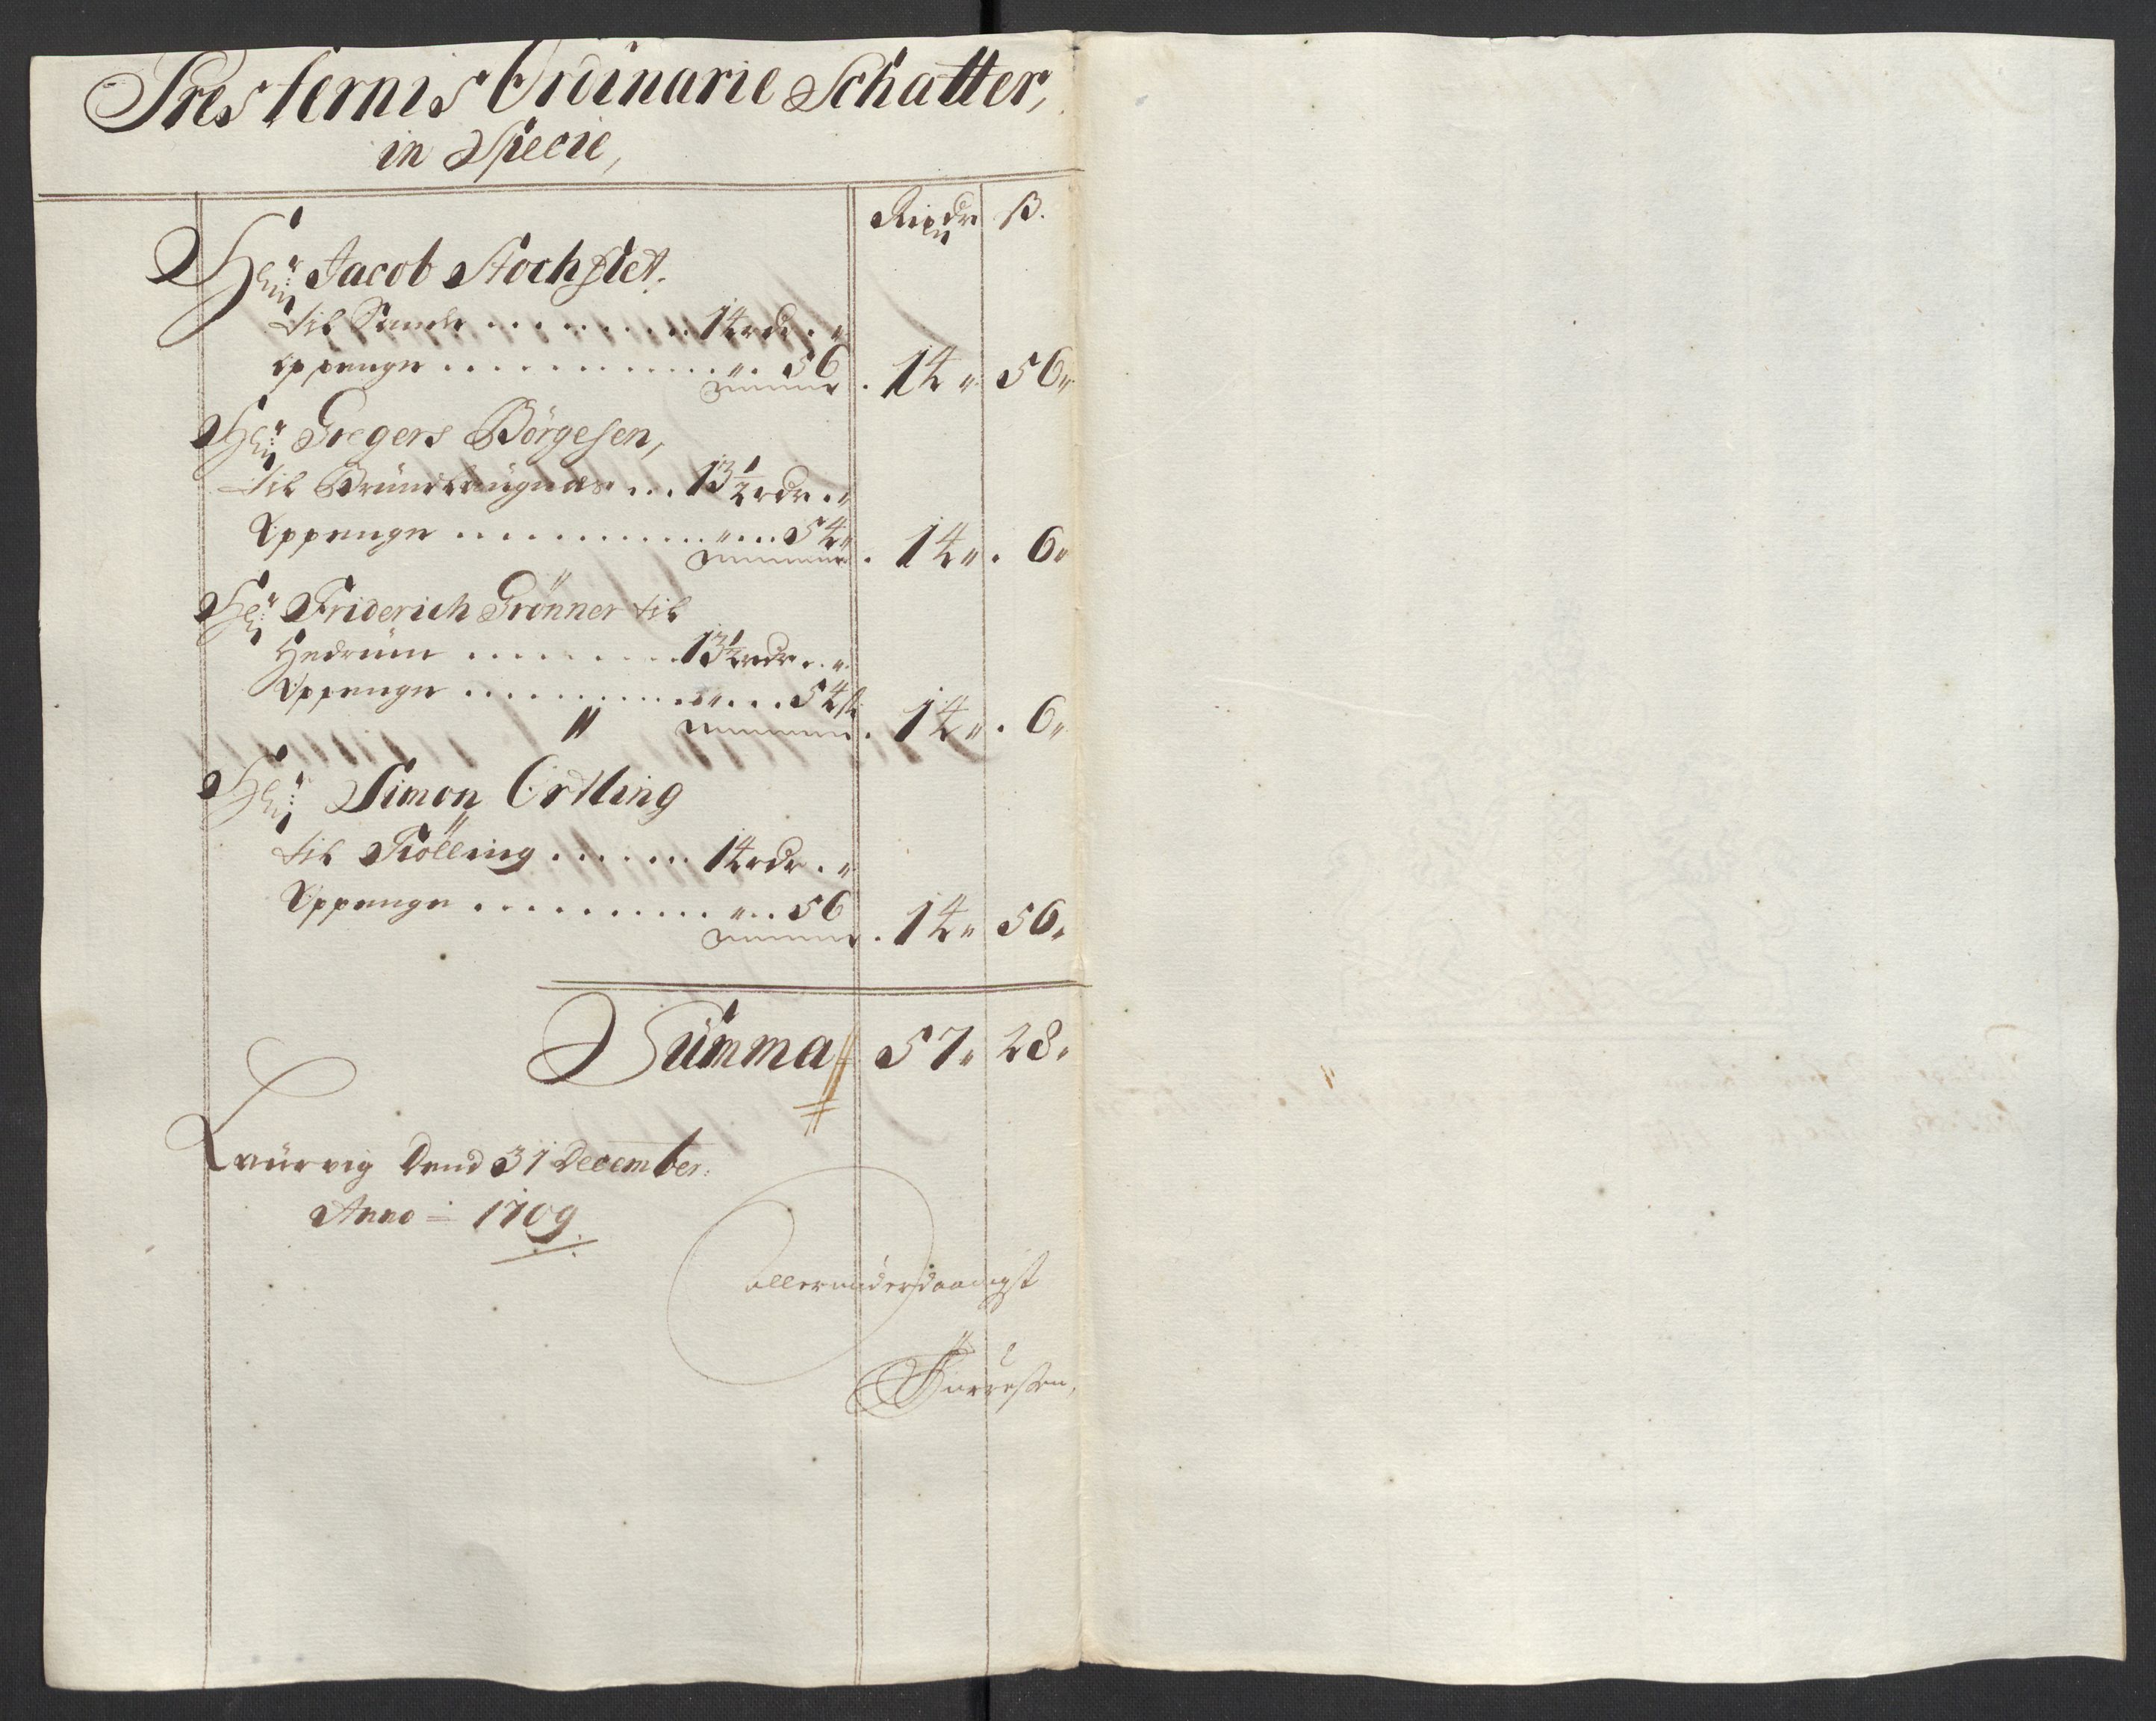 Presternis Ordinarie Schatter,
in Specie,
Rixdr ß.
Her Jacob Stochflet.
til Sande . . . . . . . . . . 14 rdr . "
Oppenge . . . . . . . . . . . . . " . 56
. 14 " 56 "
Her Gregers Börgesen,
til Brundlaugnæs . . . 13½ rdr . "
Oppenge . . . . . . . . . . . . . " . . . 54 "
. 14 " . 6 "
Her Friderich Grønner til
Hedrum . . . . . . . . . . 13½ rdr . . "
Oppenge . . . . . . . . . . . . " . . . 54 ß
. 14 " . 6 "
Her Simon Ortling
til Tiölling . . . . . . . 14 rdr . "
Oppenge . . . . . . . . . . . " . . 56
. 14 " 56 "
Summa 57 " 28 "
Laurvig Dend 31 December:
Anno = 1709.
allerunderdaanigst